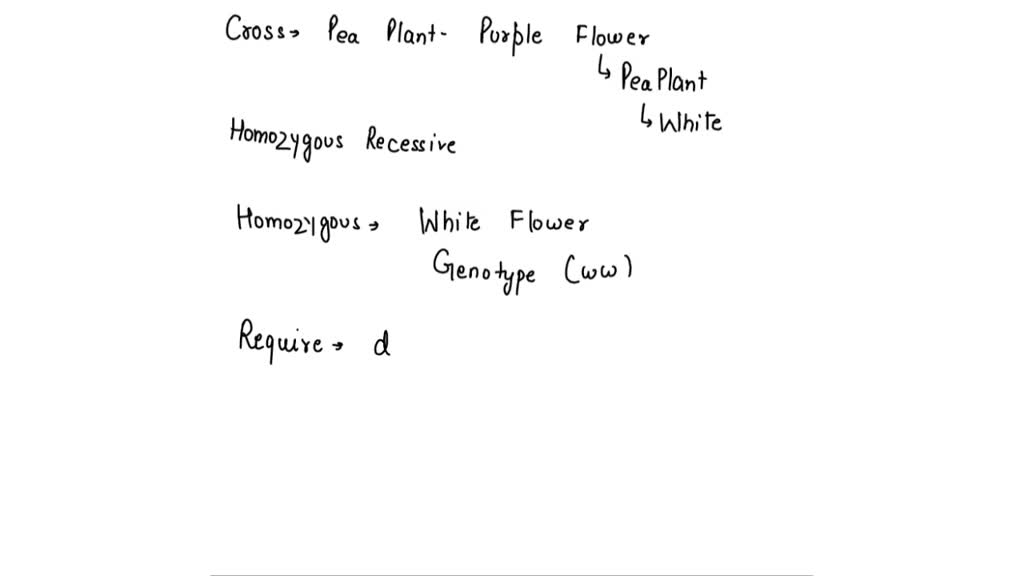 Cross→ Pea Plant- Purple Flower
↳ Pea Plant
↳ White
Homozygous Recessive
Homozygous→ White Flower
Genotype (ww)
Require→ d